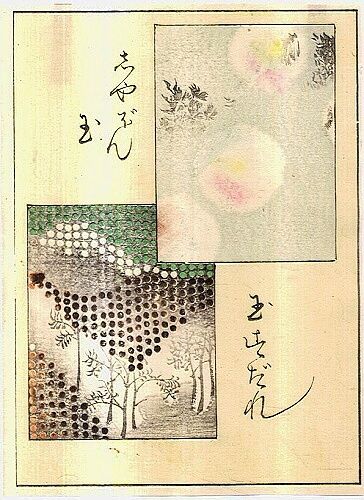 志やぼん
玉
玉すだれ